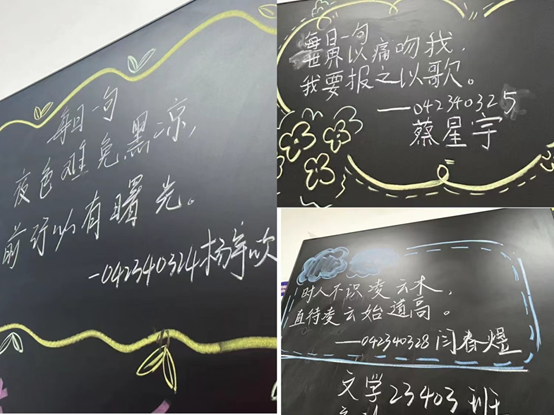 每日一句
夜色难免黑凉,
前行必有曙光。
—042340324杨
每日一句
世界以痛吻我,
我要报之以歌。
—042340325
蔡星宇
时人不识凌云木,
直待凌云始道高。
—042340328闫春煜
文学23403班